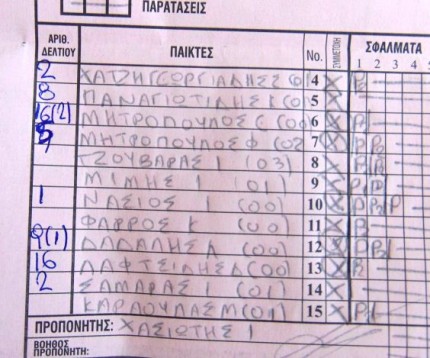 ΠΑΡΑΤΑΣΕΙΣ
ΑΡΙΘ. ΔΕΛΤΙΟΥ ΠΑΙΚΤΕΣ No. ΣΥΜΜΕΤΟΧΗ ΣΦΑΛΜΑΤΑ
1 2 3 4
2 ΧΑΤΖΗΓΕΩΡΓΙΑΔΗΣ Σ 4 X P2
8 ΠΑΝΑΓΙΩΤΙΔΗΣ Κ 5 X
16(2) ΜΗΤΡΟΠΟΥΛΟΣ 6 X
5 ΜΗΤΡΟΠΟΥΛΟΣ Φ (02 7 X
7 ΤΖΟΥΒΑΡΑΣ Ι (03) 8 X
ΜΙΜΗΣ Ι (01) 9 X
1 ΝΑΣΙΟΣ Ι (00) 10 X
ΦΑΡΡΟΣ Κ (00) 11 X
9(1) ΔΑΔΑΛΗΣ Α (00) 12 X
16 ΛΑΦΤΣΙΔΗΣ Δ(00) 13 X
2 ΣΑΜΑΡΑΣ Ι (01) 14 X
ΚΑΡΔΟΥΛΑΣ Μ(01) 15 X
ΠΡΟΠΟΝΗΤΗΣ: ΧΑΣΙΩΤΗΣ Ι
ΒΟΗΘΟΣ
ΠΡΟΠΟΝΗΤΗ: